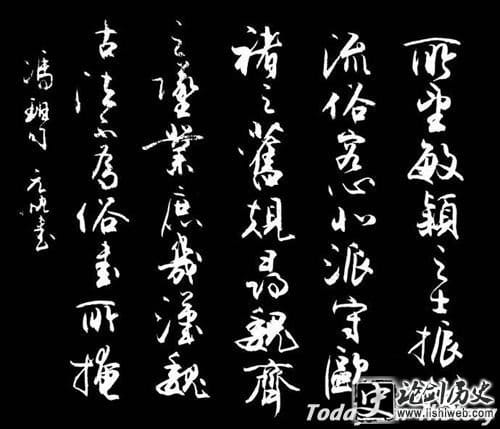 所望敏穎之士振
流俗究心北派守歐
褚之舊規尋魏齊
之墜業庶幾漢魏
古法不為俗書所掩
馮班句 書
史 论剑历史
www.lishiweb.com